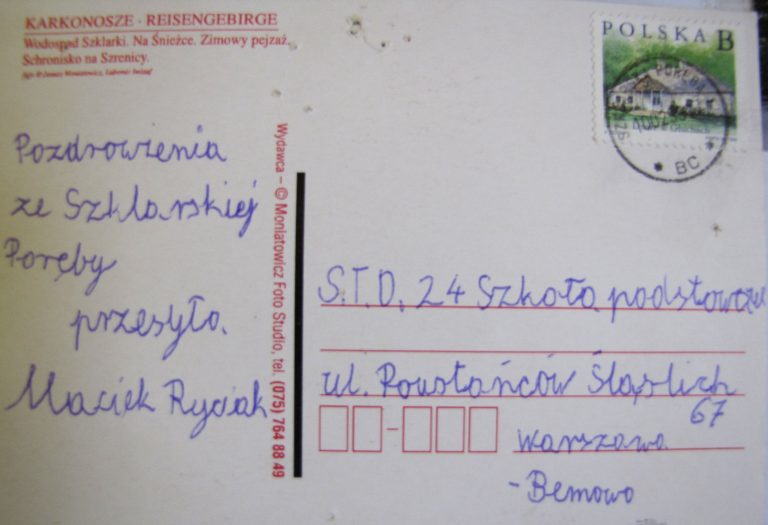 KARKONOSZE · REISENGEBIRGE
Wodospad Szklarki. Na Śnieżce. Zimowy pejzaż.
Schronisko na Szrenicy.
Pozdrowienia
ze Szklarskiej
Poręby
przesyła
Maciek Rysiak
Wydawca – © Moniatowicz Foto Studio, tel. (075) 764 88 49
POLSKA B
BC
S.T.D. 24 Szkoła podstawowa
ul. Powstańców Śląskich
67
Warszawa
-Bemowo